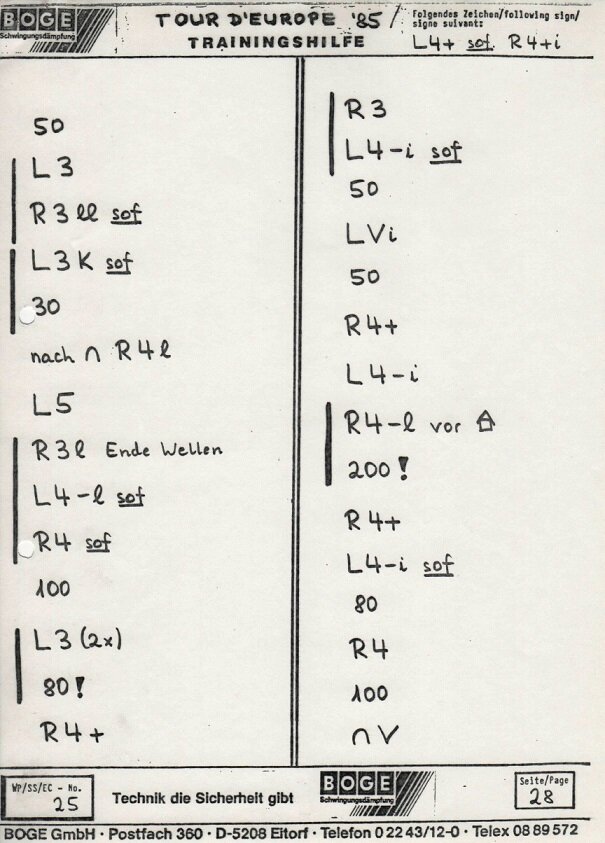 BOGE
Schwingungsdämpfung
TOUR D'EUROPE '85
TRAININGSHILFE
Folgendes Zeichen/following sign/
signe suivant:
L4+ sof R4+i
50
L3
R3 ll sof
L3 K sof
30
nach ∩ R4l
L5
R3l Ende Wellen
L4-l sof
R4 sof
100
L3 (2x)
80!
R4+
R3
L4-i sof
50
LVi
50
R4+
L4-i
R4-l vor ⌂
200!
R4+
L4-i sof
80
R4
100
∩ V
WP/SS/EC - No.
25
Technik die Sicherheit gibt
BOGE
Schwingungsdämpfung
Seite/Page
28
BOGE GmbH · Postfach 360 · D-5208 Eitorf · Telefon 0 22 43/12-0 · Telex 08 89 572